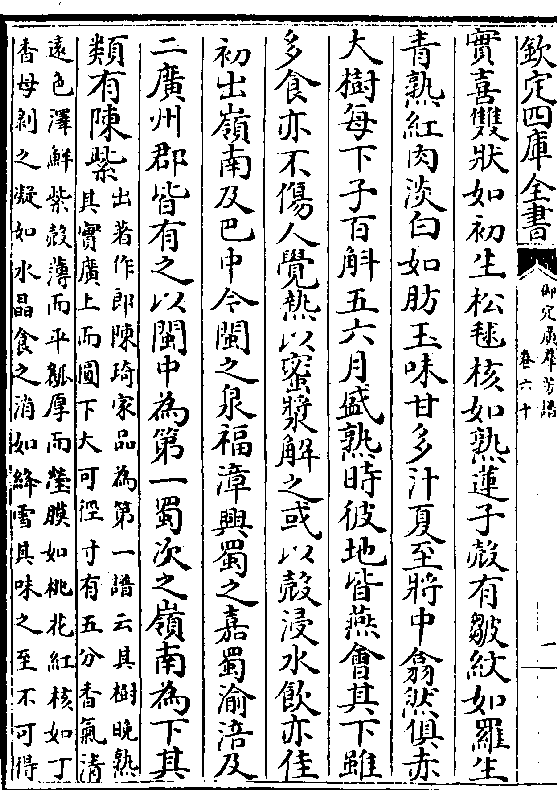 欽定四庫全書
御定廣群芳譜
卷六十
一
實喜雙狀如初生松毬核如熟蓮子殼有皺紋如羅生
青熟紅肉淡白如肪玉味甘多汁夏至將中翕然俱赤
大樹每下子百斛五六月盛熟時彼地皆燕㑹其下雖
多食亦不傷人覺熱以蜜漿解之或以殼浸水飲亦佳
初出嶺南及巴中今閩之泉福漳興蜀之嘉蜀渝涪及
二廣州郡皆有之以閩中為第一蜀次之嶺南為下其
類有陳紫
出著作郎陳琦家品為第一譜云其樹晚熟
其實廣上而圓下大可徑寸有五分香氣清
逺色澤鮮紫殼薄而平瓤厚而瑩膜如桃花紅核如丁
香母剥之凝如水晶食之消如絳雪其味之至不可得